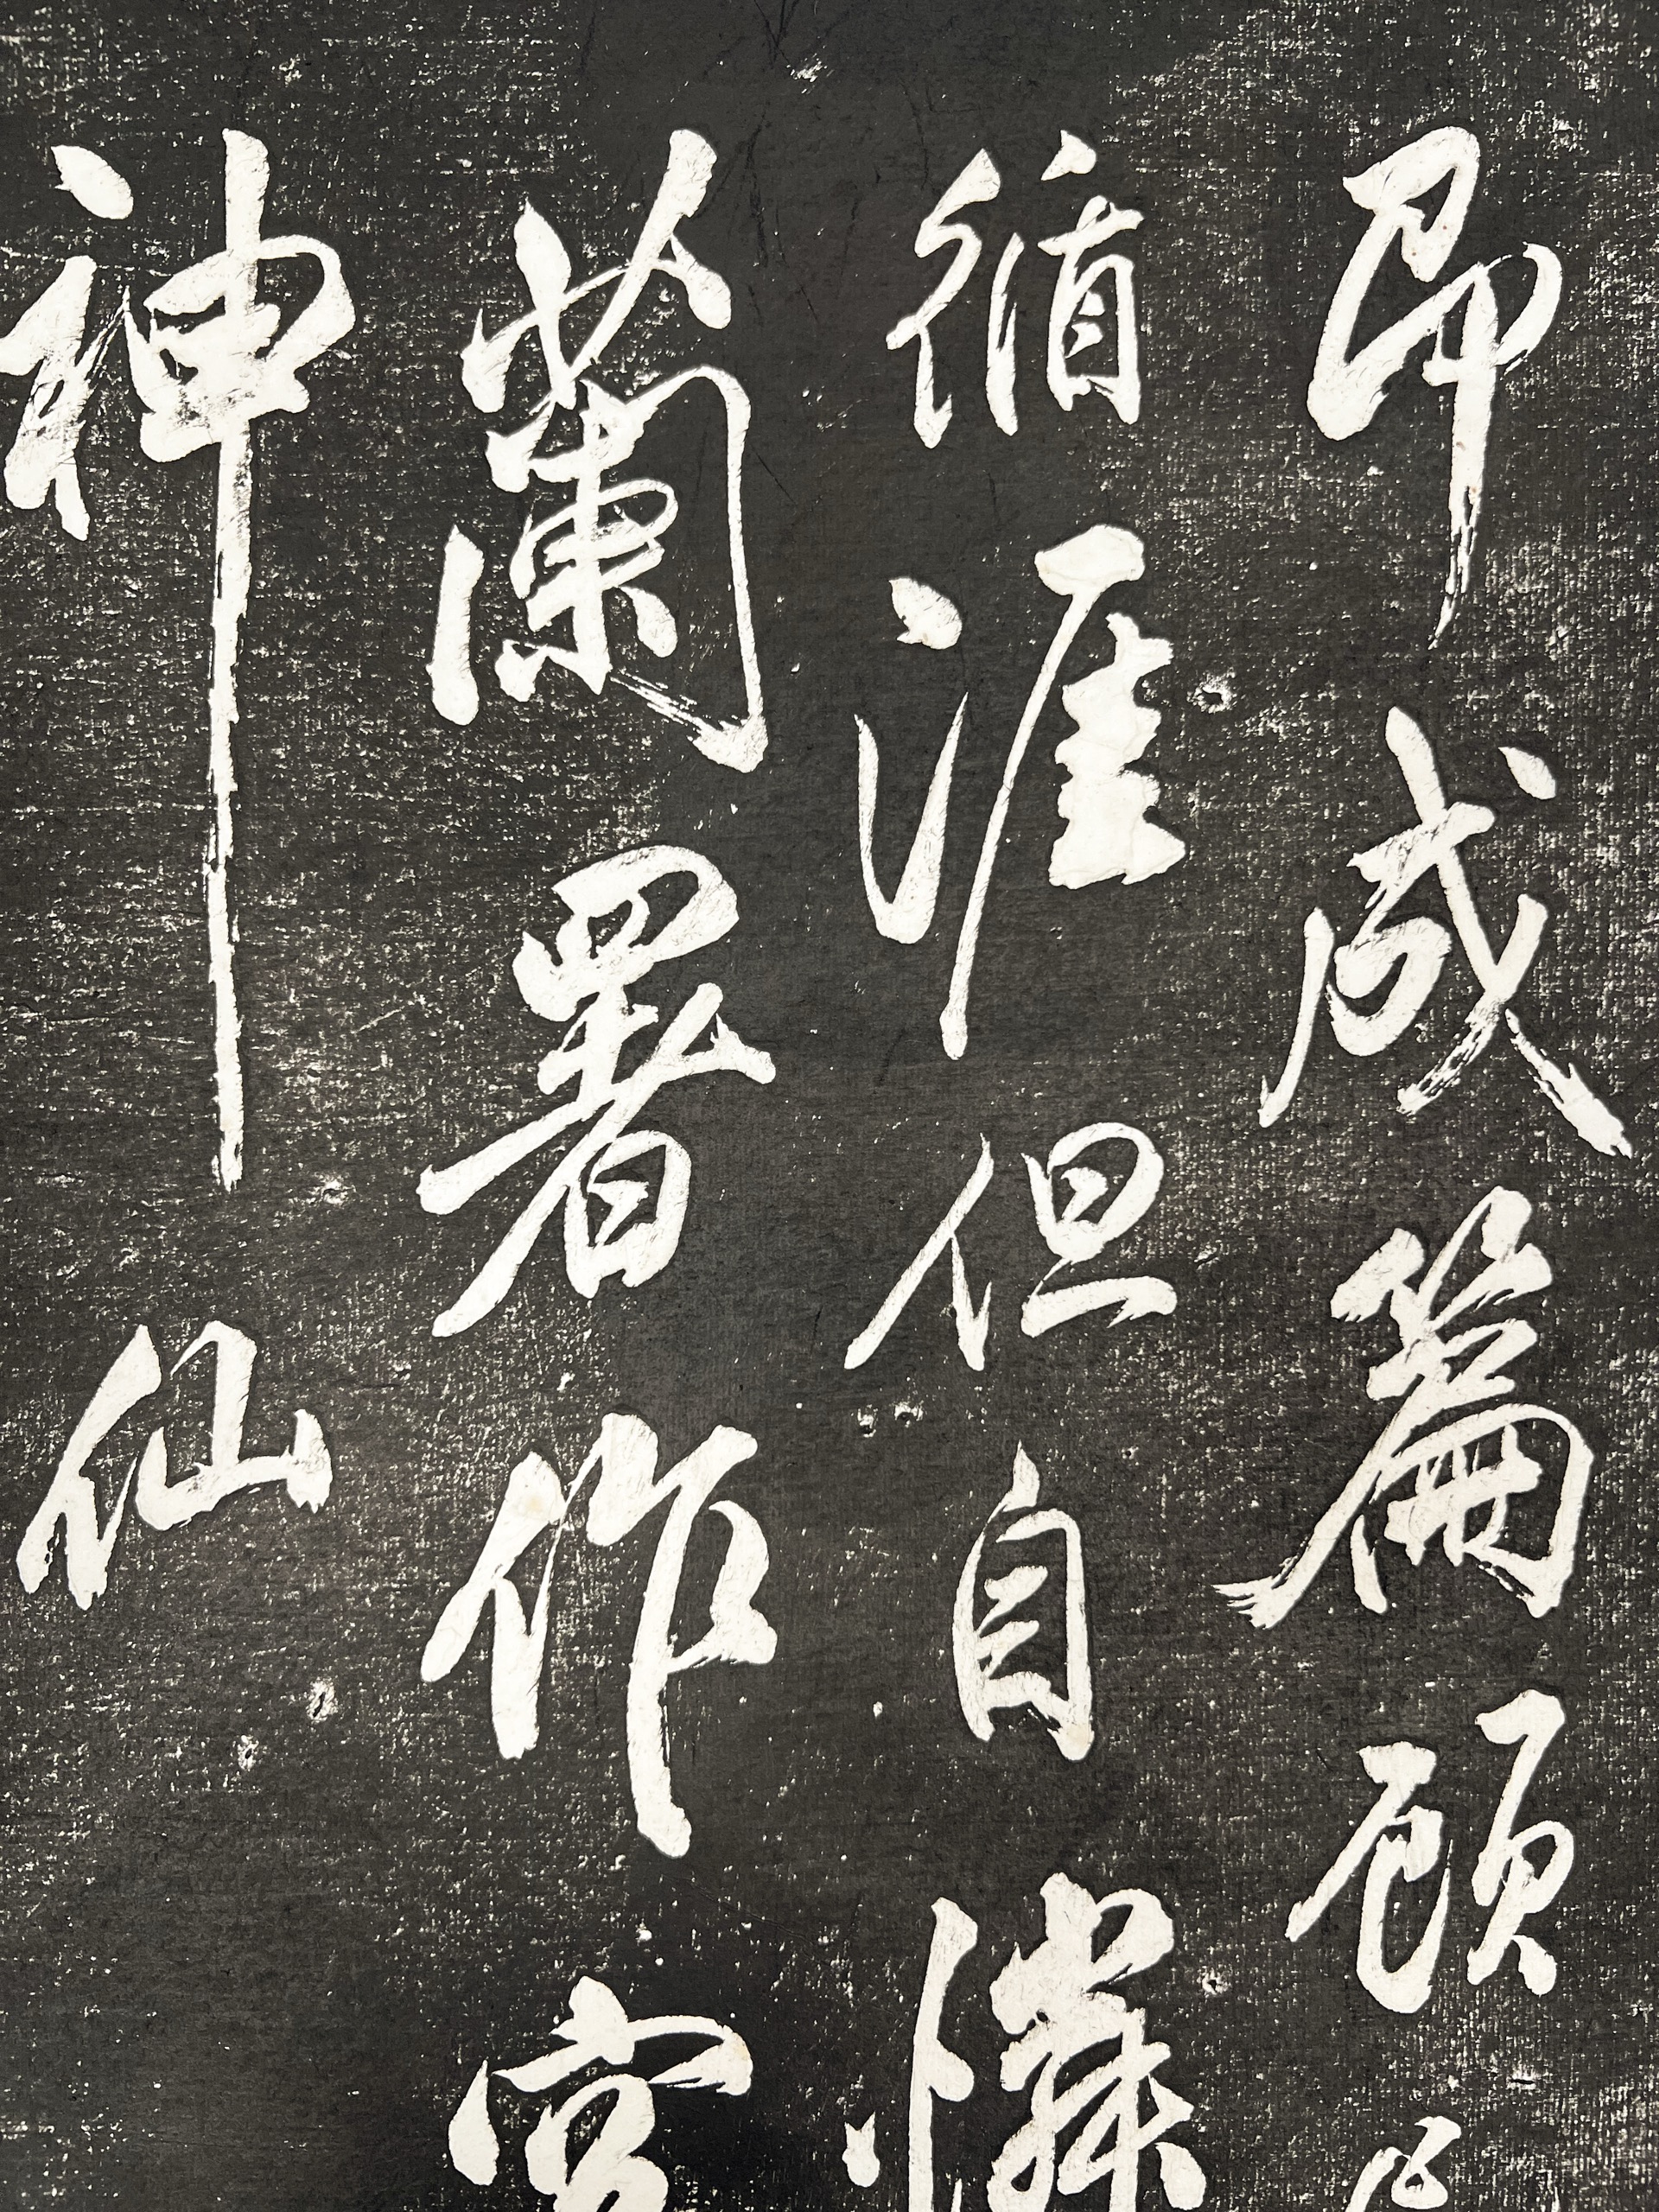 即成篇顧
循涯但自憐
蘭署作
神仙